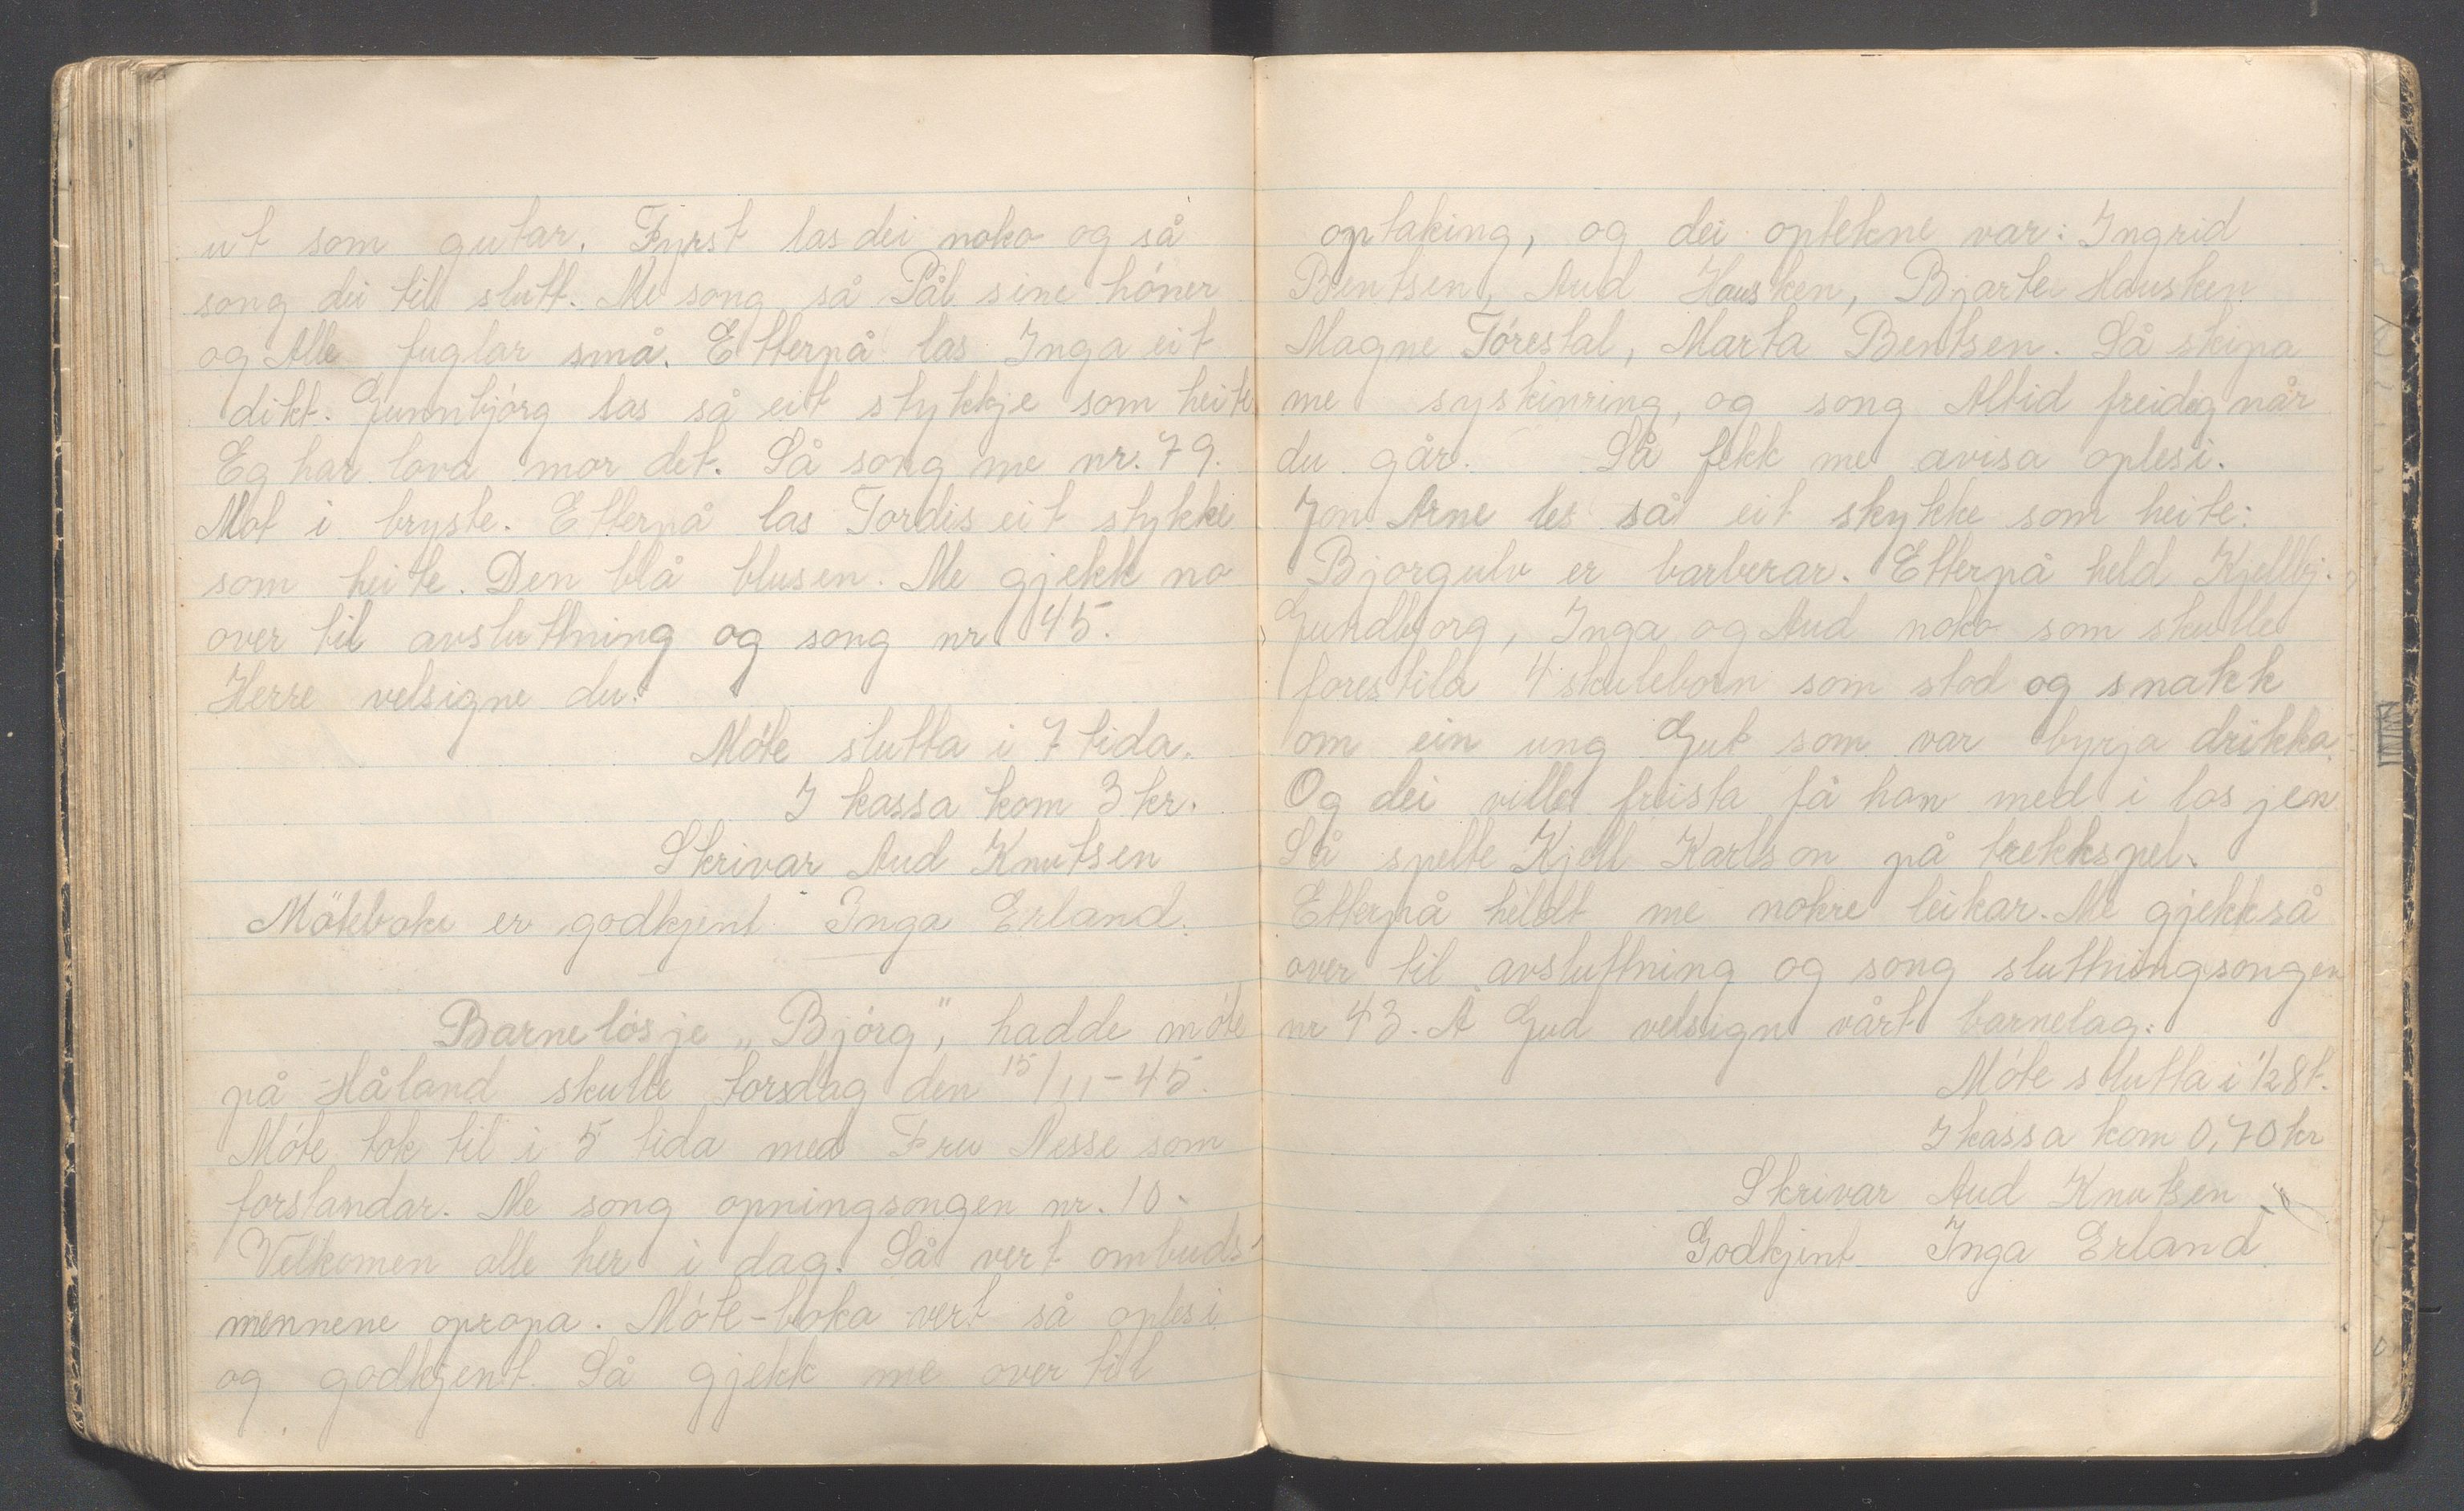 ut som gutar. Fyrst las dei noko og så
song dei til slutt. Me song så Pål sine höner
og Alle fuglar små. Etterpå las Inga eit
dikt. Gunnbjörg las så eit stykkje som heite
Eg har lova mor det. Så song me nr. 79.
Mot i bryste. Etterpå las Tordis eit stykke
som heite. Den blå blusen. Me gjekk no
over til avsluttning og song nr 45.
Herre velsigne du.
Möte slutta i 7 tida.
I kassa kom 3 kr.
Skrivar Aud Knutsen
Möteboka er godkjent Inga Erland.
Barnelosje „Björg", hadde möte
på Håland skulle torsdag den 15/11-45.
Möte tok til i 5 tida med Fru Nesse som
forstandar. Me song opningsongen nr. 10.
Velkomen alle her i dag. Så vert ombuds-
mennene opropa. Möte-boka vert så oplesi
og godkjent. Så gjekk me over til
optaking, og dei optekne var: Ingrid
Bentsen, Aud Hausken, Bjarte Hausken
Magne Törestal, Marta Bentsen. Så skipa
me syskinring, og song Altid freidig når
du går. Så fekk me avisa oplesi.
Jon Arne les så eit skykke som heite:
Bjorgulv er barberar. Etterpå held Kjellbj.,
Gundbjorg, Inga og Aud noko som skulle
forestila 4 skuleborn som stod og snakk
om ein ung Gut som var byrja drikka.
Og dei ville freista få han med i losjen
Så spelte Kjell Karlson på trekkspel.
Etterpå heldt me nokre leikar. Me gjekk så
over til avsluttning og song sluttningsongen
nr 43. Å Gud velsign vårt barnelag.
Möte slutta i 1/2 8 t.
I kassa kom 0,70 kr
Skrivar Aud Knutsen
Godkjent Inga Erland